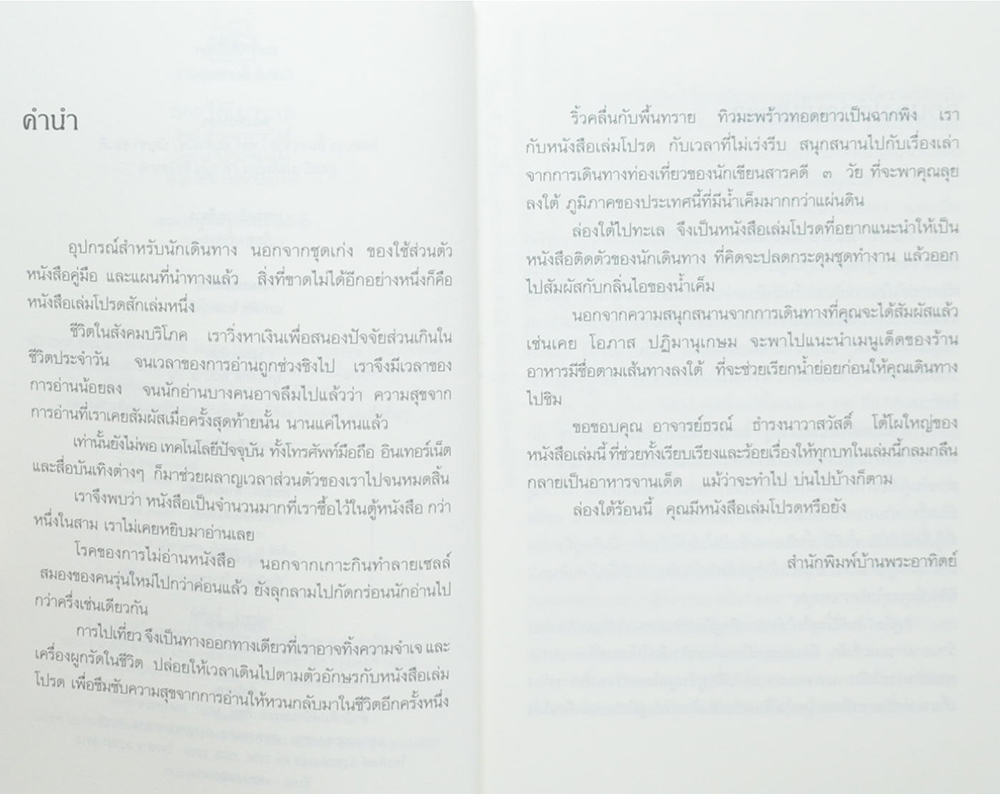 คำนำ
อุปกรณ์สำหรับนักเดินทาง นอกจากชุดเก่ง ของใช้ส่วนตัว
หนังสือคู่มือ และแผนที่นำทางแล้ว สิ่งที่ขาดไม่ได้อีกอย่างหนึ่งก็คือ
หนังสือเล่มโปรดสักเล่มหนึ่ง
ชีวิตในสังคมบริโภค เราวิ่งหาเงินเพื่อสนองปัจจัยส่วนเกินใน
ชีวิตประจำวัน จนเวลาของการอ่านถูกช่วงชิงไป เราจึงมีเวลาของ
การอ่านน้อยลง จนนักอ่านบางคนอาจลืมไปแล้วว่า ความสุขจาก
การอ่านที่เราเคยสัมผัสเมื่อครั้งสุดท้ายนั้น นานแค่ไหนแล้ว
เท่านั้นยังไม่พอ เทคโนโลยีปัจจุบัน ทั้งโทรศัพท์มือถือ อินเทอร์เน็ต
และสื่อบันเทิงต่างๆ ก็มาช่วยผลาญเวลาส่วนตัวของเราไปจนหมดสิ้น
เราจึงพบว่า หนังสือเป็นจำนวนมากที่เราซื้อไว้ในตู้หนังสือ กว่า
หนึ่งในสาม เราไม่เคยหยิบมาอ่านเลย
โรคของการไม่อ่านหนังสือ นอกจากเกาะกินทำลายเซลล์
สมองของคนรุ่นใหม่ไปกว่าค่อนแล้ว ยังลุกลามไปกัดกร่อนนักอ่านไป
กว่าครึ่งเช่นเดียวกัน
การไปเที่ยว จึงเป็นทางออกทางเดียวที่เราอาจทิ้งความจำเจ และ
เครื่องผูกรัดในชีวิต ปล่อยให้เวลาเดินไปตามตัวอักษรกับหนังสือเล่ม
โปรด เพื่อซึมซับความสุขจากการอ่านให้หวนกลับมาในชีวิตอีกครั้งหนึ่ง
ริ้วคลื่นกับพื้นทราย ทิวมะพร้าวทอดยาวเป็นฉากพิง เรา
กับหนังสือเล่มโปรด กับเวลาที่ไม่เร่งรีบ สนุกสนานไปกับเรื่องเล่า
จากการเดินทางท่องเที่ยวของนักเขียนสารคดี ๓ วัย ที่จะพาคุณลุย
ลงใต้ ภูมิภาคของประเทศนี้ที่มีน้ำเค็มมากกว่าแผ่นดิน
ล่องใต้ไปทะเล จึงเป็นหนังสือเล่มโปรดที่อยากแนะนำให้เป็น
หนังสือติดตัวของนักเดินทาง ที่คิดจะปลดกระดุมชุดทำงาน แล้วออก
ไปสัมผัสกับกลิ่นไอของน้ำเค็ม
นอกจากความสนุกสนานจากการเดินทางที่คุณจะได้สัมผัสแล้ว
เช่นเคย โอภาส ปฏิมานุเกษม จะพาไปแนะนำเมนูเด็ดของร้าน
อาหารมีชื่อตามเส้นทางลงใต้ ที่จะช่วยเรียกน้ำย่อยก่อนให้คุณเดินทาง
ไปชิม
ขอขอบคุณ อาจารย์ธรณ์ ธำรงนาวาสวัสดิ์ โต้โผใหญ่ของ
หนังสือเล่มนี้ ที่ช่วยทั้งเรียบเรียงและร้อยเรื่องให้ทุกบทในเล่มนี้กลมกลืน
กลายเป็นอาหารจานเด็ด แม้ว่าจะทำไป บ่นไปบ้างก็ตาม
ล่องใต้ร้อนนี้ คุณมีหนังสือเล่มโปรดหรือยัง
สำนักพิมพ์บ้านพระอาทิตย์